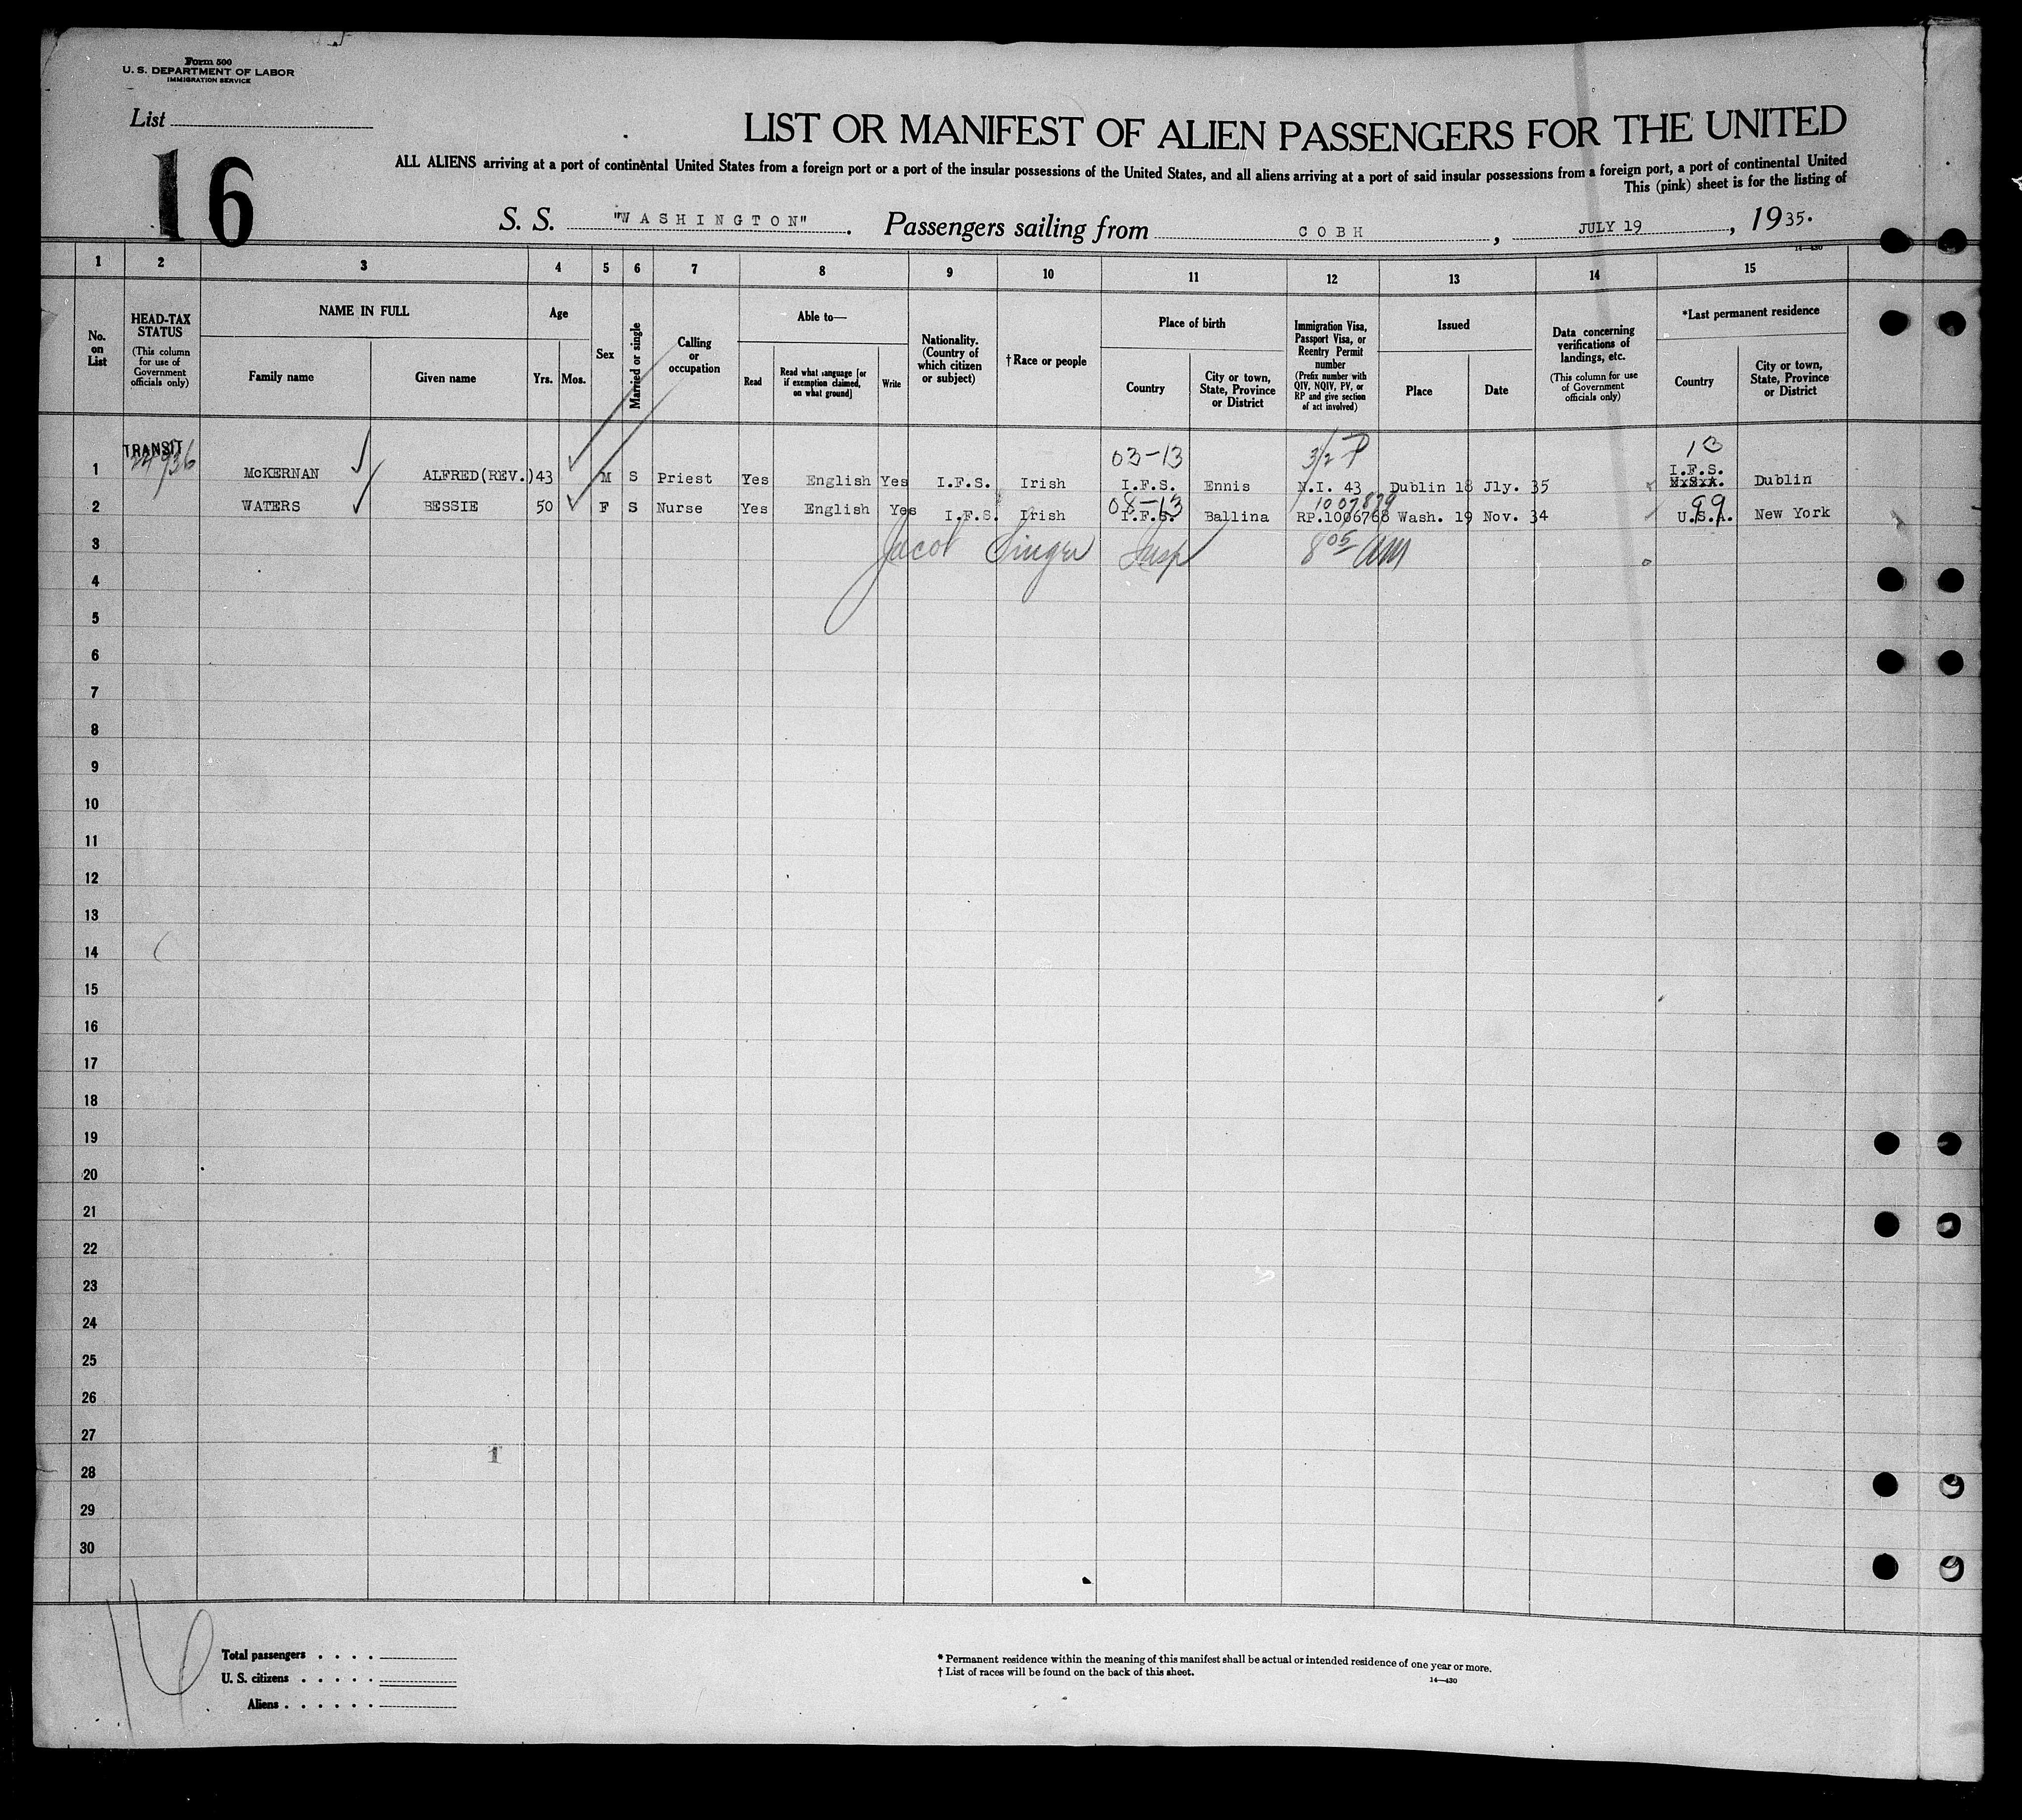 Form 500
U. S. DEPARTMENT OF LABOR
IMMIGRATION SERVICE
List
16
LIST OR MANIFEST OF ALIEN PASSENGERS FOR THE UNITED
ALL ALIENS arriving at a port of continental United States from a foreign port or a port of the insular possessions of the United States, and all aliens arriving at a port of said insular possessions from a foreign port, a port of continental United
This (pink) sheet is for the listing of
S. S. "WASHINGTON". Passengers sailing from COBH, JULY 19, 1935.
14—430
1 2 3 4 5 6 7 8 9 10 11 12 13 14 15
No. on List
HEAD-TAX STATUS
(This column for use of Government officials only)
NAME IN FULL
Family name
Given name
Age
Yrs.
Mos.
Sex
Married or single
Calling or occupation
Able to—
Read
Read what language [or if exemption claimed, on what ground]
Write
Nationality. (Country of which citizen or subject)
† Race or people
Place of birth
Country
City or town, State, Province or District
Immigration Visa, Passport Visa, or Reentry Permit number
(Prefix number with QIV, NQIV, PV, or RP and give section of act involved)
Issued
Place
Date
Data concerning verifications of landings, etc.
(This column for use of Government officials only)
*Last permanent residence
Country
City or town, State, Province or District
TRANSIT
03-13 3/2 P 13
1 McKERNAN ALFRED(REV.) 43 M S Priest Yes English Yes I.F.S. Irish I.F.S. Ennis N.I. 43 Dublin 18 Jly. 35 I.F.S. Dublin
08-13 1007879 99
2 WATERS BESSIE 50 F S Nurse Yes English Yes I.F.S. Irish I.F.S. Ballina RP.1006768 Wash. 19 Nov. 34 U.S.A. New York
3 Jacob Singer Insp 8 05 AM
4
5
6
7
8
9
10
11
12
13
14
15
16
17
18
19
20
21
22
23
24
25
26
27
1
28
29
30
16
Total passengers . . . .
U. S. citizens . . . . .
Aliens . . . . . .
* Permanent residence within the meaning of this manifest shall be actual or intended residence of one year or more.
† List of races will be found on the back of this sheet.
14—430